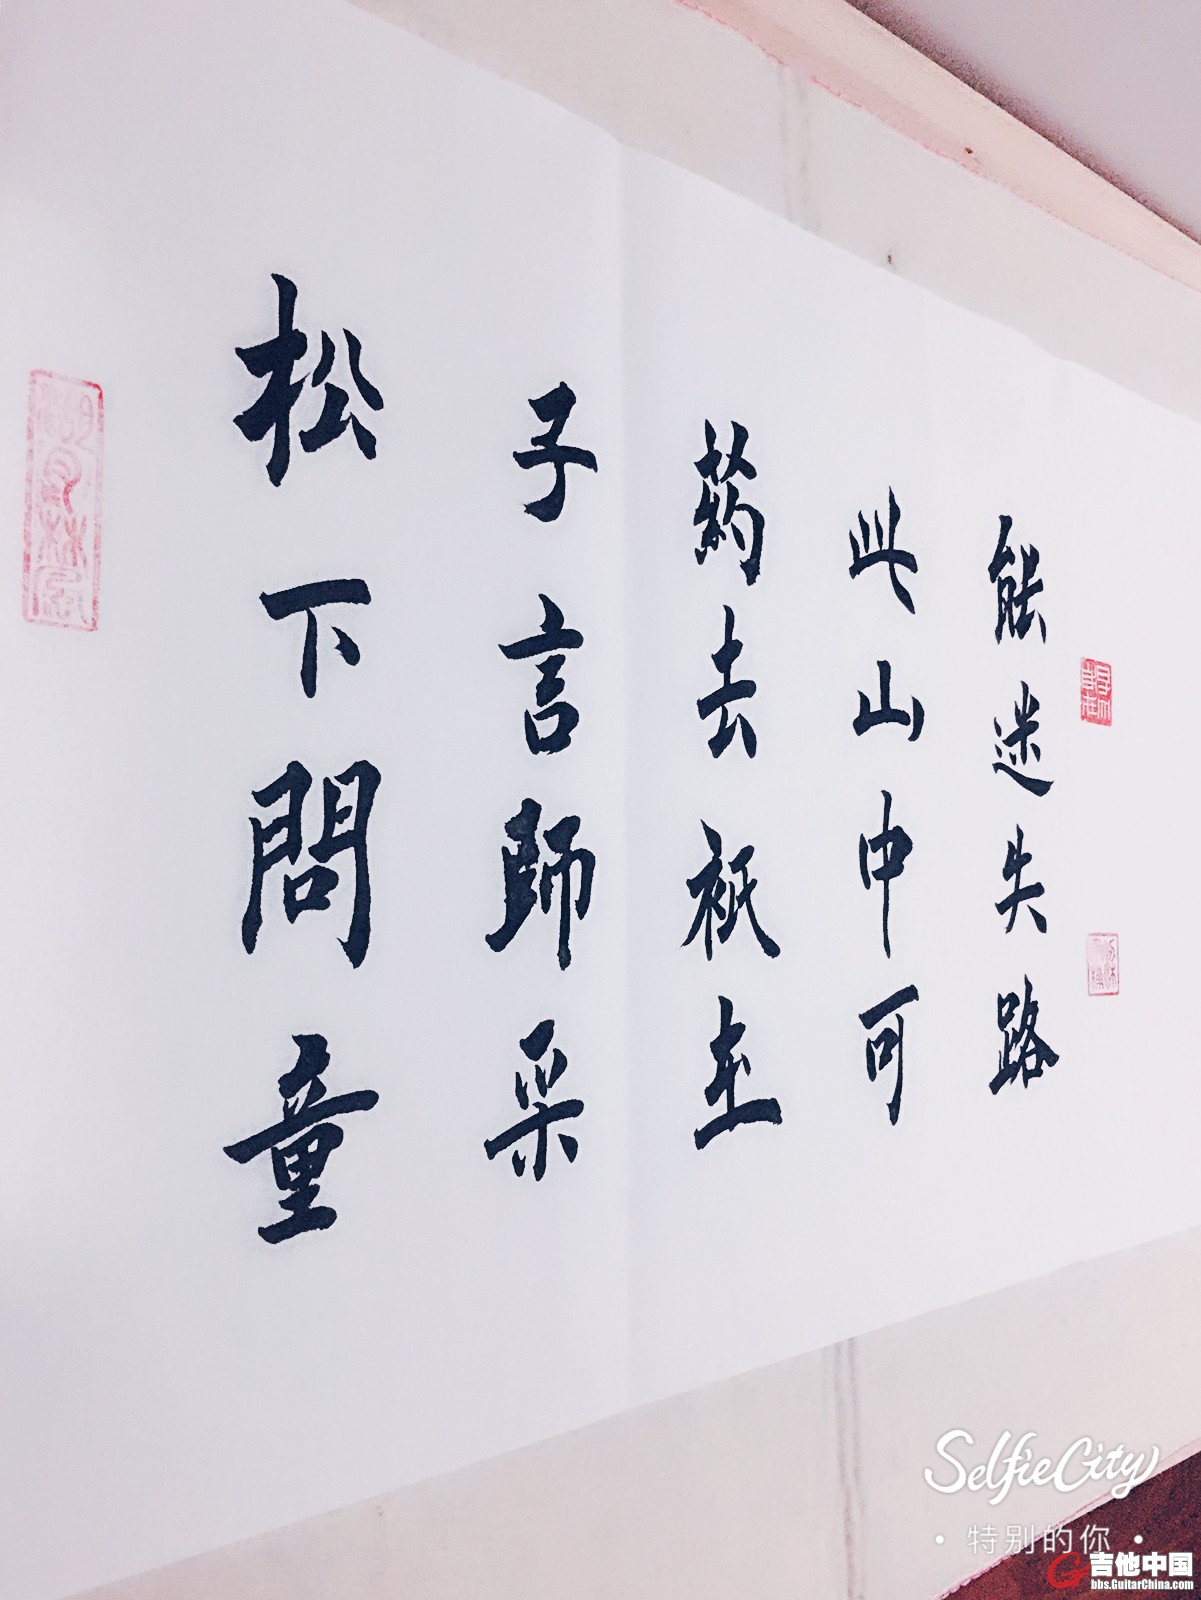 松下問童
子言師采
葯去衹在
此山中可
能迷失路
SelfieCity
• 特别的你 •
吉他中国
bbs.GuitarChina.com